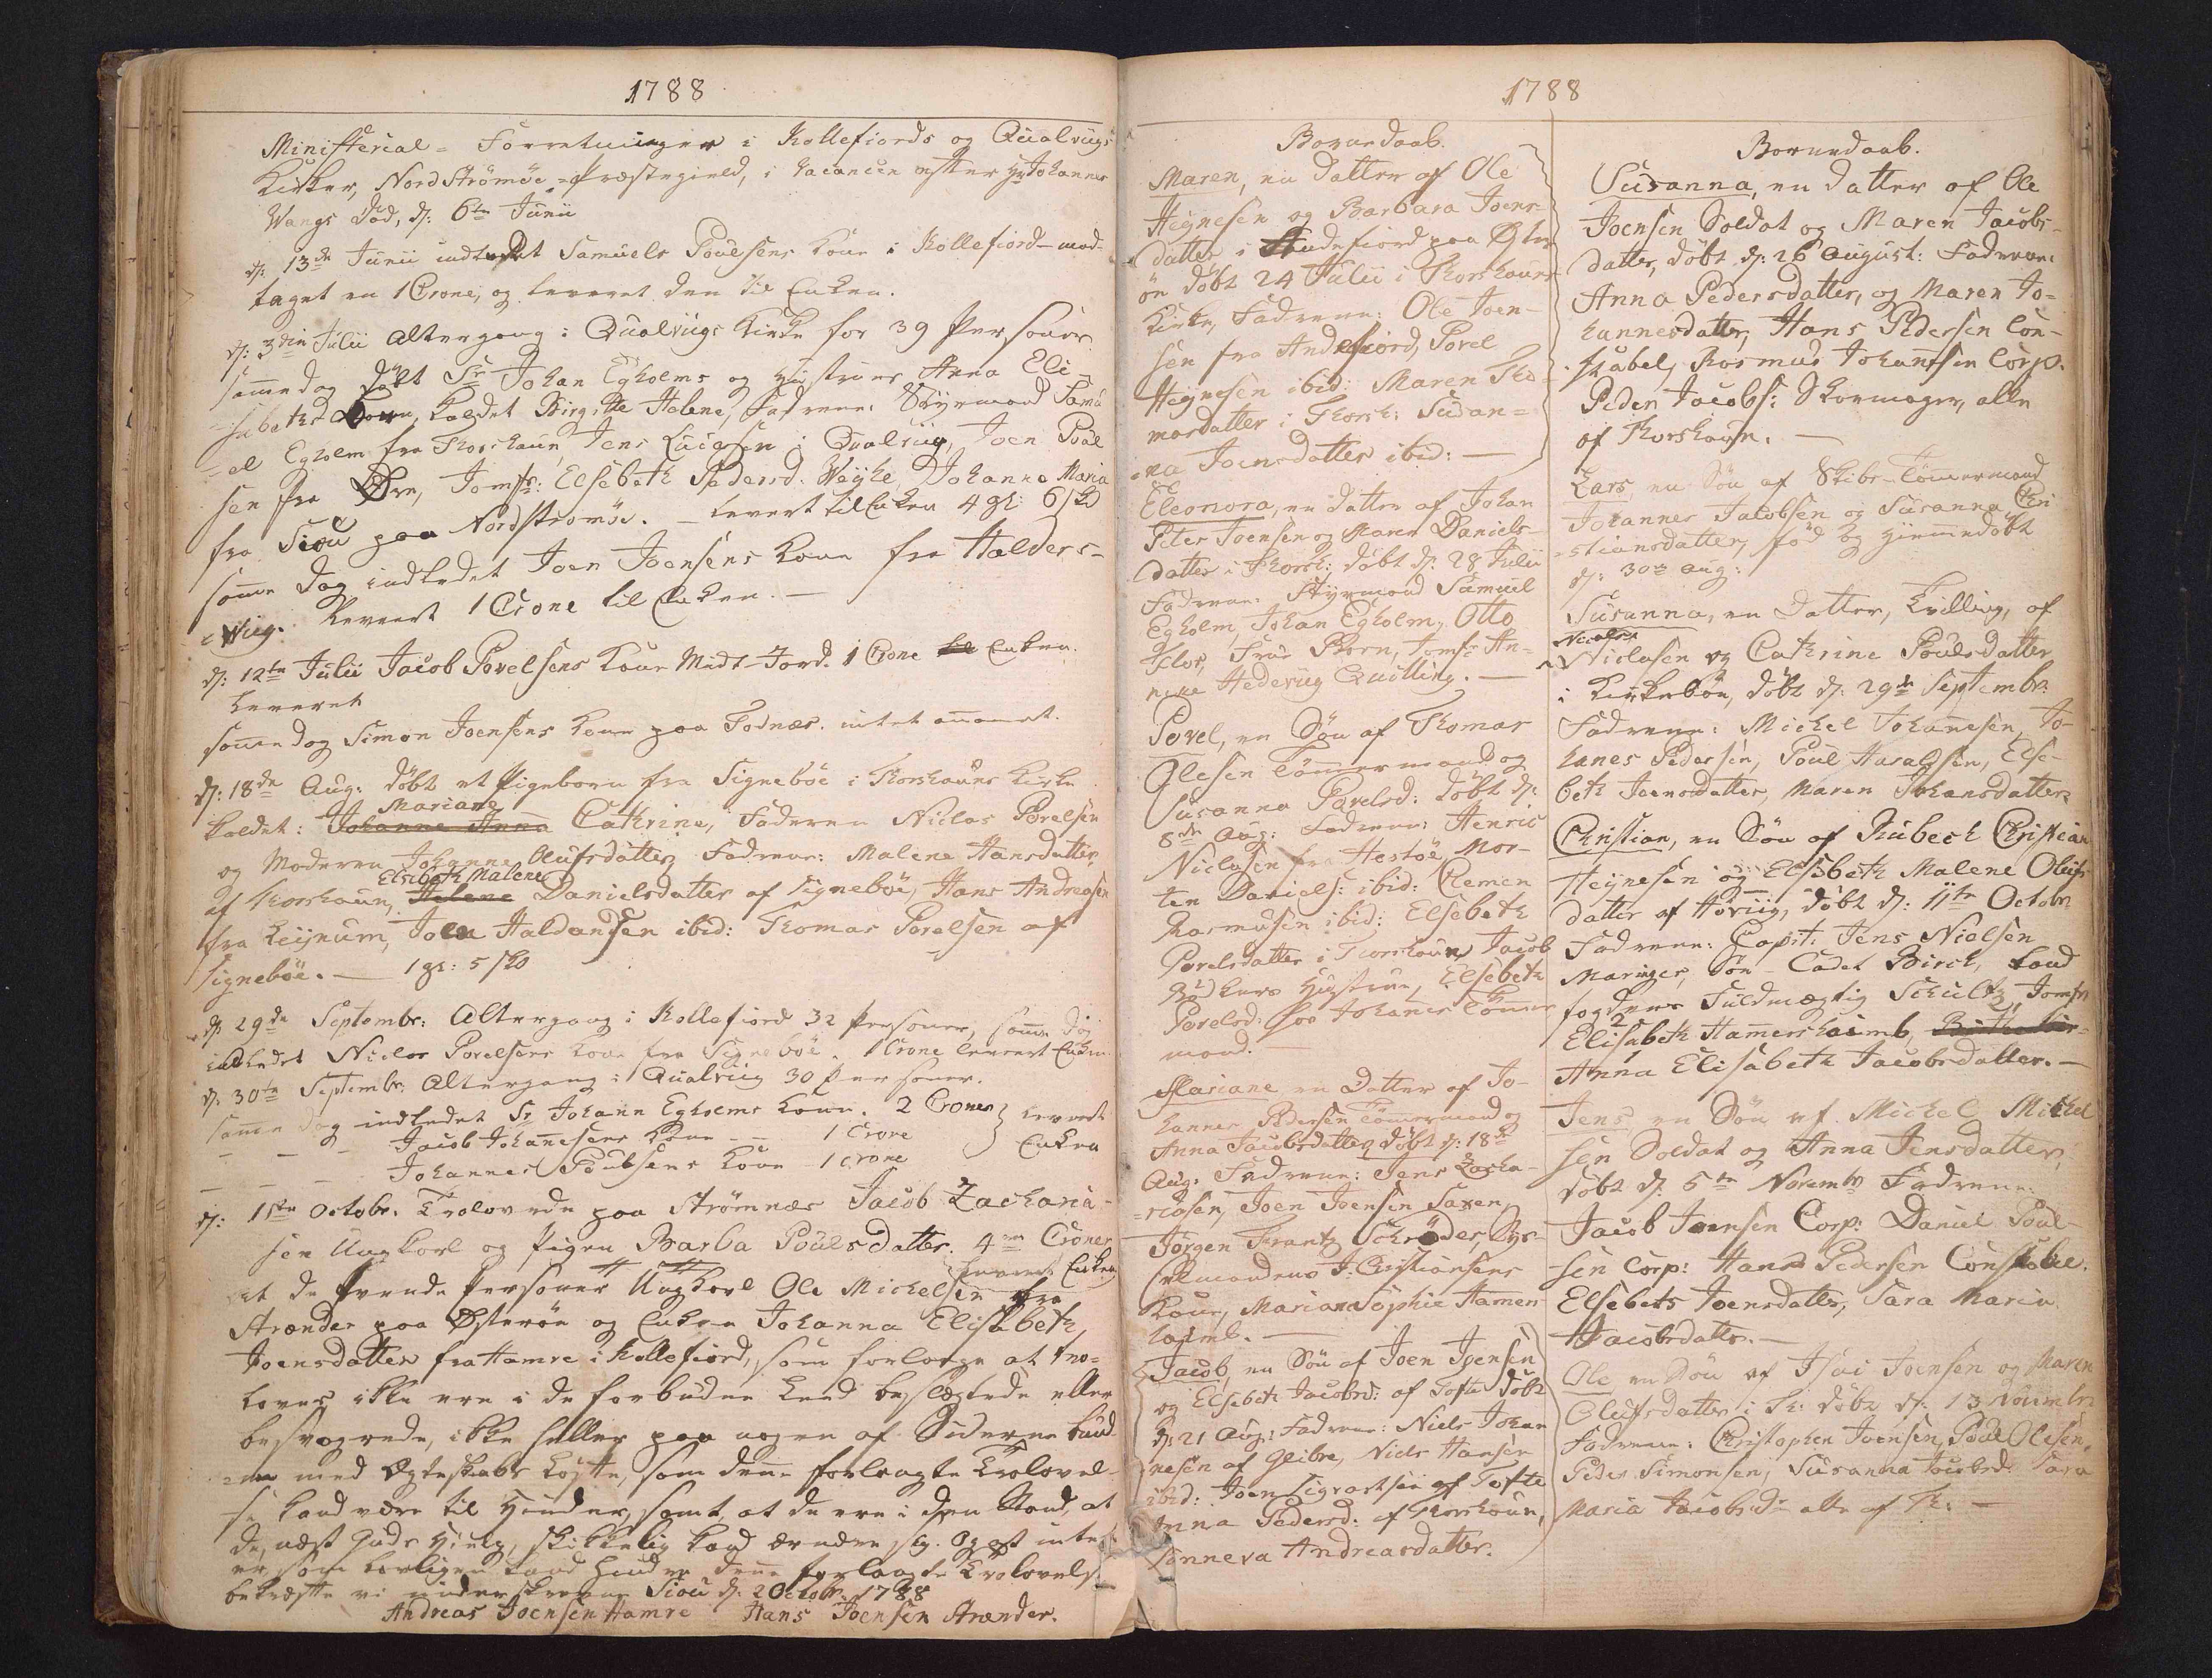 1788
Ministerial = Forretninger i Kollefiords og Qualviigs
Kirker, NordStrömöe = Præstegield, i Vacancen efter Hr Johannes
Wangs Död, d: 6te Junii
d: 13de Junii indledet Samuels Poulsens Kone i Kollefiord - mod-
taget en 1 Crone, og leveret den til Enken.
d: 3die Julii Altergang i Qualviigs Kirke for 39 Personer
samme dag döbt Sr Johan Egholms og Hustrues Anna Eli-
sabeths Barn, kaldet Birgitte Helene, Fadderne: Styrmand Samu
=el Egholm fra Thorshaun, Jens Lucassen i Qualviig, Joen Poul
sen fra Øre, Jomfr: Elsebeth Pedersd. Weyhe, Johanne Maria
fra Siou paa Nordströmöe. — levert til Enken 4 gl: 6 sk
samme dag indledet Joen Joensens Kone fra Halders-
=viig. Leveret 1 Crone til Enken. —
d: 12te Julii Jacob Povelsens Kone Midt-Jord. 1 Crone Enken.
Leveret
samme dag Simon Joensens Kone paa Todnæs. intet annamet.
d: 18de Aug: döbt et Pigebarn fra Signeböe i Thorshauns Kirke
Mariane
kaldet: Johanne Anna Cathrine, Faderen Niclas Povelsen
og Moderen Johanne Olufsdatter, Fadderne: Malene Hansdatter
Elsebeth Malene
af Thorshaun, Helene Danielsdatter af Signeböe, Hans Andreasen
fra Leijnum, Joen Haldansen ibid: Thomas Povelsen af
Signeböe. — 1 gl: 5 sk
d: 29de Septembr: Altergang i Kollefiord 32 Personer, samme Dag
indledet Niclas Povelsens Kone fra Signeböe. 1 Crone leveret Enken.
d: 30te Septembr: Altergang i Qualviig 30 Personer.
samme Dag indledet Sr Johann Egholms Kone. 2 Croner leveret
— — — Jacob Johannesens Kone — — 1 Crone Enken
— — — Johannes Poulsens Kone — 1 crone
d: 1ste Octobr. Trolovede paa Strömnæs Jacob Zacharia-
sen Ungkarl og Pigen Barba Poulsdatter. 4re Croner
leveret Enken
at de tvende Personer Ungkarl Ole Michelsen fra
Strænder paa Østeröe og Enken Johanna Elisabeth
Joensdatter fra Hamre i Kollefiord, som forlange at tro-
loves ikke ere i de forbudne Leed beslægtede eller
besvogrede, ikke heller paa nogen af Siderne bund-
=ne med Ægteskabs Löfte, som denne forlangte Trolovel-
se kand være til Hinder, samt, at de ere i den Stand, at
de, næst Guds Hielp, skikkelig kand ernære sig. Og at intet
er, som lovligen kand hindre denne forlangte Trolovelse
bekræfte vi underskrevne Siou d: 2 Octobr 1788
Andreas Joensen Hamre Hans Joensen Strænder.
1788
Bornedaab.
Maren, en Datter af Ole
Heynesen og Barbara Joens-
datter i Andefiord paa Øster
öe döbt 24 Julii i Thorshauns
Kirke, Fadderne: Ole Joen-
sen fra Andefiord, Povel
Heynesen ibid: Maren Tho-
masdatter i Thorsh: Susan=
=na Joensdatter ibid: —
Eleonora, en Datter af Johan
Peter Joensen og Maren Daniels-
datter i Thorsh: döbt d: 28 Julii
Fadderne: Styrmand Samuel
Egholm, Johan Egholm, Otto
Flor, Frue Born, Jomfr An-
nine Hedevig Quilling. —
Povel, en Sön af Thomas
Olesen Tömmermand og
Susanna Povelsd: döbt d:
8de Aug: Fadderne: Henric
Niclasen fra Hestöe, Mor-
ten Daniels: ibid: Clemen
Rasmusen ibid: Elsebeth
Povelsdatter i Thorshaun, Jacob
Bödkers Hustrue, Elsebeth
Povelsd: hos Johannes Tömmer
mand. —
Mariane en Datter af Jo-
hannes Pedersen Tömmermand og
Anna Jacobsdatter, döbt d: 18de
Aug: Fadderne: Jens Zacha-
=riasen, Joen Joensen Saxen,
Jörgen Frantz Schröder, Sys-
selmandens J: Christiansens
Kone, Mariana Sophie Hamers-
haimb. —
Jacob, en Sön af Joen Joensen
og Elsebeth Jacobsd: af Tofte döbt
d: 21 Aug: Fadderne: Niels Johan
nesen af Glibre, Niels Hansen
ibid: Joen Sigvartsen af Tofte
Anna Pedersd: af Thorshaun,
Sunneva Andreasdatter.
1788
Bornedaab.
Susanna, en Datter af Ole
Joensen Soldat og Maren Jacobs-
datter, döbt d: 26 August: Fadderne:
Anna Pedersdatter, og Maren Jo=
hannesdatter, Hans Pedersen Con-
stabel, Rasmus Johansen Corp.
Peder Jacobs: Skomager, alle
af Thorshaun. —
Lars, en Sön af Skibs-Tömmermand
Johannes Jacobsen og Susanna Chri
=stiansdatter, föd og hiemmedöbt
d: 30te Aug:
Susanna, en Datter, Tvilling, af
Nicolas
Niclasen og Cathrine Poulsdatter
i Kirkeböe, döbt d: 29de Septembr:
Fadderne: Michel Johannesen, Jo-
hanes Pedersen, Poul Haraldsen, Else-
beth Joensdatter, Maren Johansdatter
Christian, en Sön af Rubech Christian
Heynesen og Elsebeth Malene Olufs
datter af Höviig, döbt d: 11te Octobr.
Fadderne: Capit: Jens Nielsen
Maringer, Söe-Cadet Birch, Land
fogdens Fuldmægtig Schultz, Jomfr
Elisabeth Hamershaimb,
Anna Elisabeth Jacobsdatter. —
Jens, en Sön af Michel Michel
sen Soldat og Anna Jensdatter,
döbt d: 5te Novembr Fadderne:
Jacob Joensen Corp: Daniel Poul-
sen Corp: Hans Pedersen Constabel.
Elsebeth Joensdatter, Sara Maria
Jacobsdatter. —
Ole en Sön af Isai Joensen og Maren
Olufsdatter i Th: döbt d: 13 Novembr
Fadderne: Christopher Joensen, Poul Olesen,
Peder Simonsen, Susanna Jacobsd: Sara
Maria Jacobsd: alle af Th. —